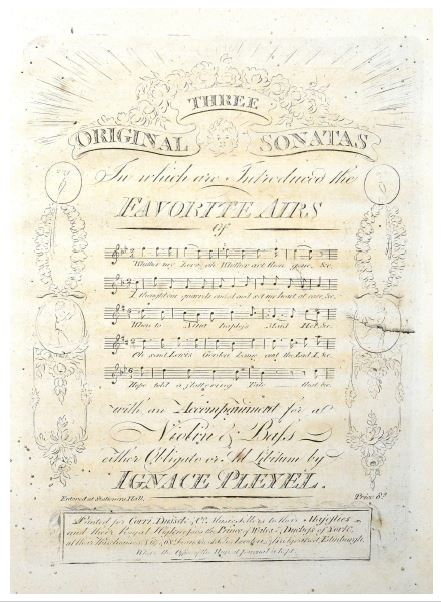 THREE
ORIGINAL SONATAS
In which are Introduced the
FAVORITE AIRS
of
Whither my Love, ah Whither art thou gone, &c.
I thought our quarrels ended and set my heart at ease, &c.
When to Nina hapless Maid Her, &c.
Oh send Lewis Gordon hame and the Lad I, &c.
Hope told a flattering Tale that &c.
with an Accompaniment for a
Violin & Bass
either Obligato or Ad Libitum by
IGNACE PLEYEL.
Entered at Stationers Hall. Price 8s
Printed for Corri, Dussek & Co. Music sellers to their Majesties
and their Royal Highnesses the Prince of Wales, Duchess of York,
London, Bridge Street Edinburgh.
Where the Office of the Musical Journal is kept.